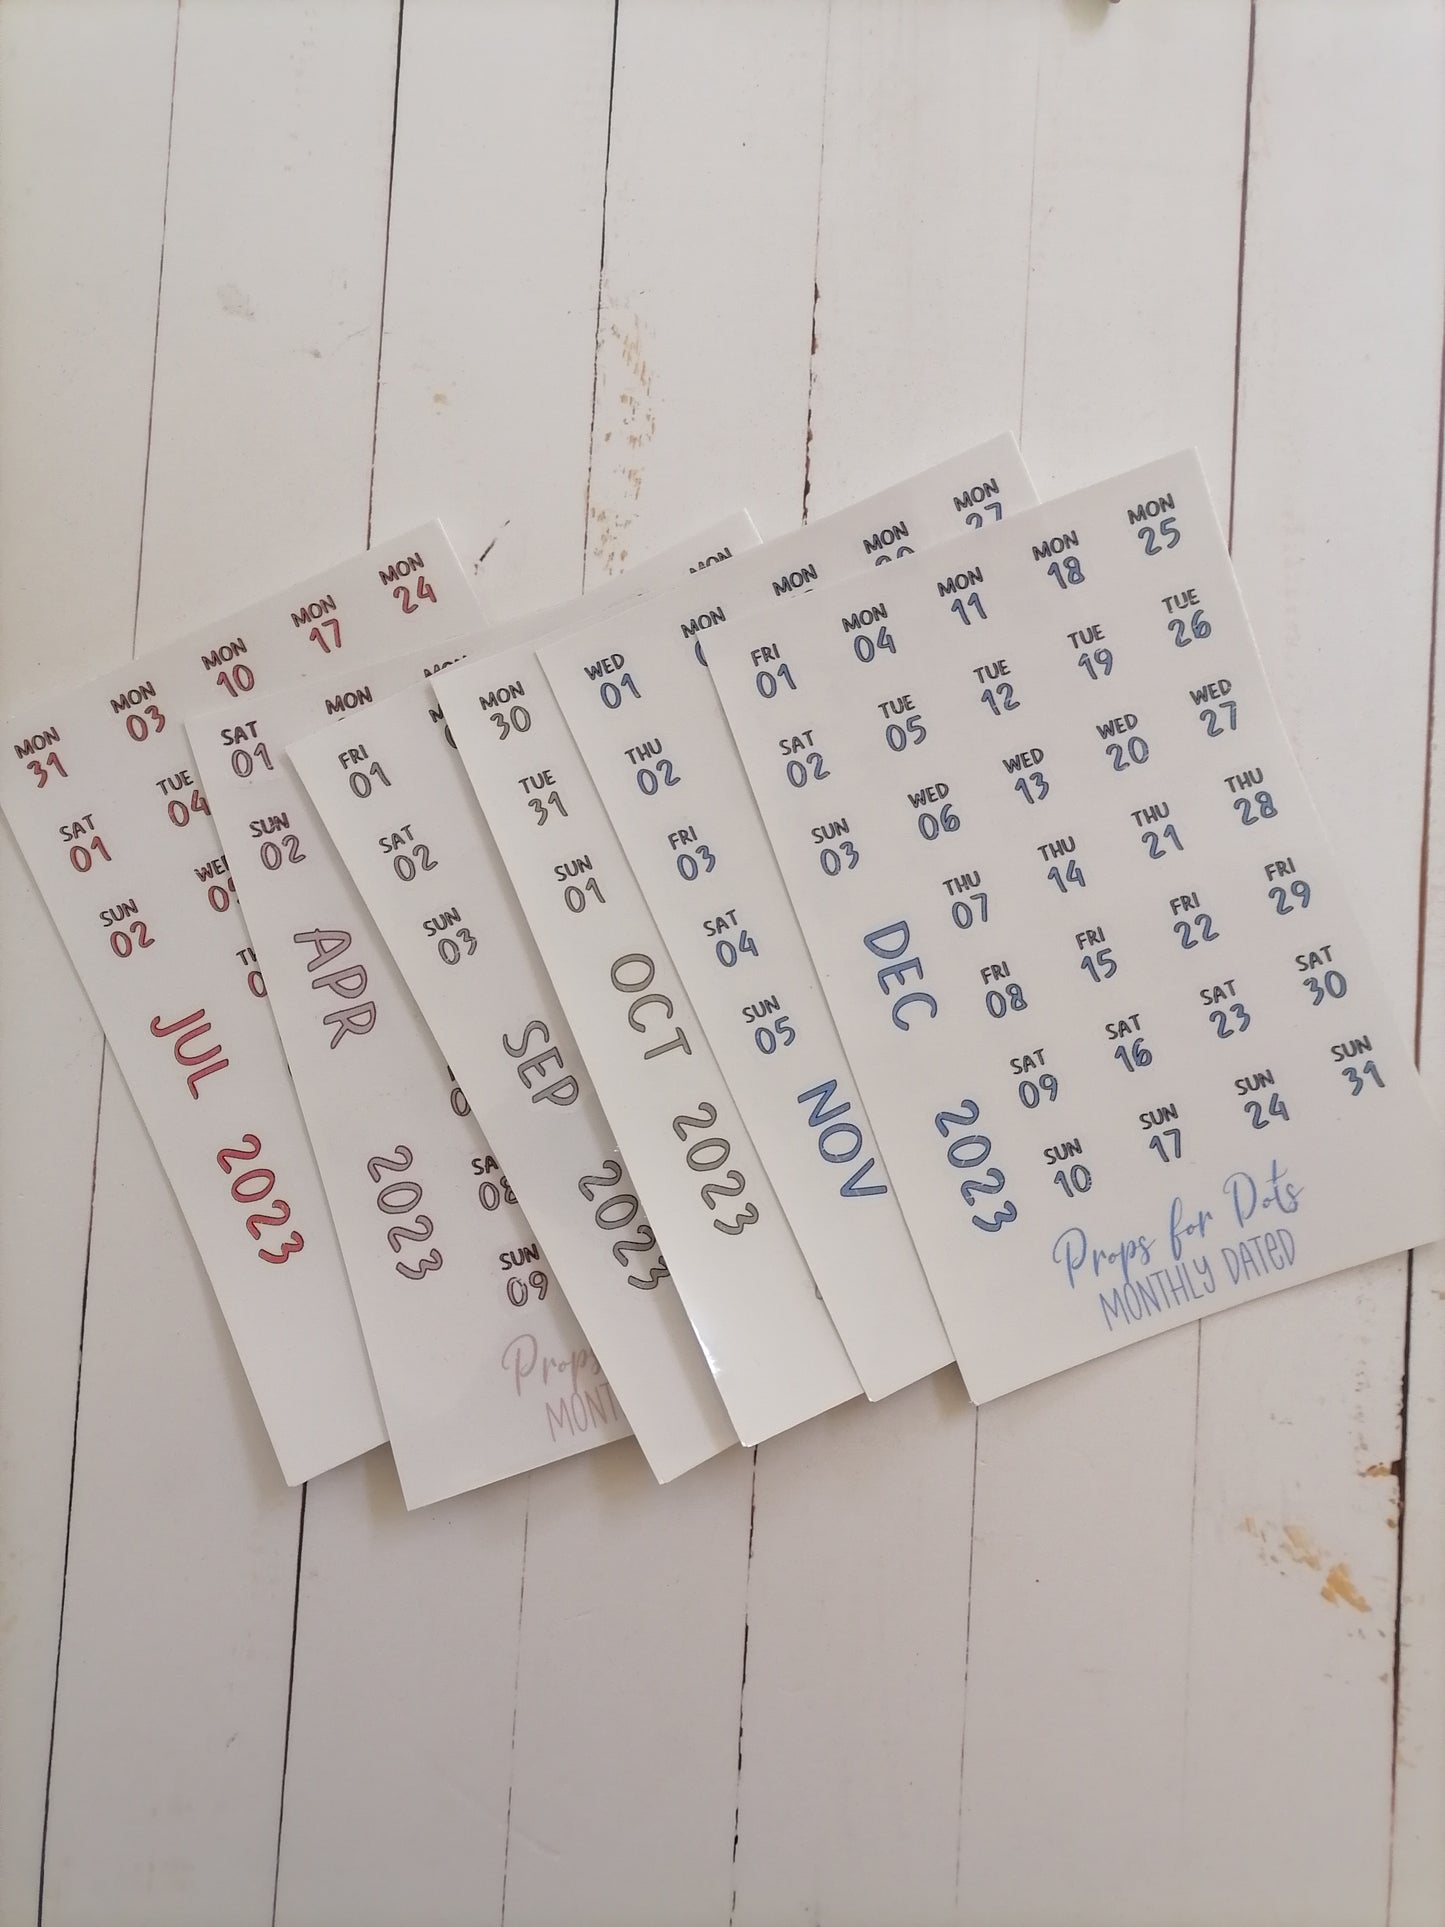 MON MON MON MON MON
31 03 10 17 24
SAT TUE
01 04
SUN
02
JUL 2023
SAT MON
01
SUN
02
APR 2023
SUN
09
Props
FRI
01
SAT
02
SUN
03
SEP 2023
MON
30
TUE
31
SUN
01
OCT 2023
WED MON MON MON MON
01 27
THU
02
FRI
03
SAT
04
SUN
05
NOV
FRI MON MON MON MON
01 04 11 18 25
SAT TUE TUE TUE TUE
02 05 12 19 26
SUN WED WED WED WED
03 06 13 20 27
THU THU THU THU
07 14 21 28
FRI FRI FRI FRI
08 15 22 29
SAT SAT SAT SAT
09 16 23 30
SUN SUN SUN SUN
10 17 24 31
DEC 2023
Props for Dots
MONTHLY DATED